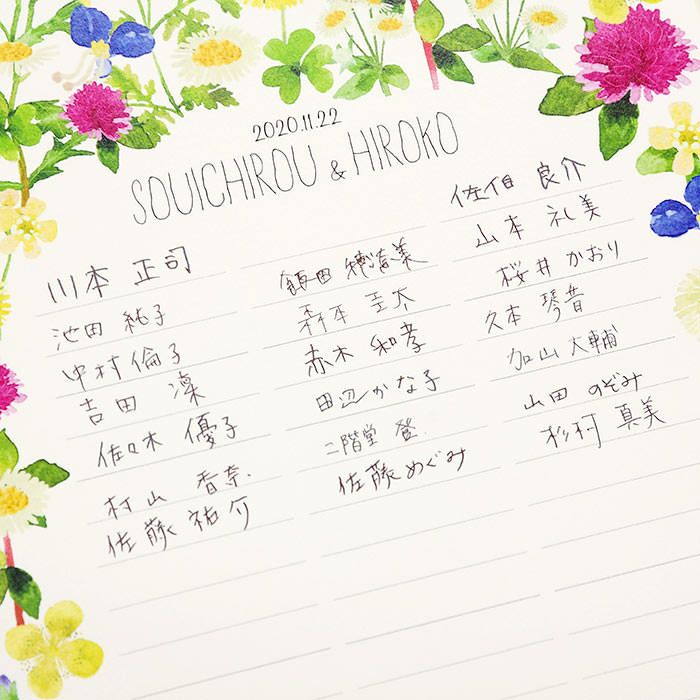 2020.11.22
SOUICHIROU & HIROKO
川本 正司
池田 純子
中村倫子
吉田 凜
佐々木 優子
村山 香奈
佐藤 祐介
鎮田 穂菜美
森本 圭太
赤木 和孝
田辺かな子
二階堂 登
佐藤めぐみ
佐伯 良介
山本 礼美
桜井かおり
久本 琴音
加山大輔
山田 のぞみ
杉村 真美